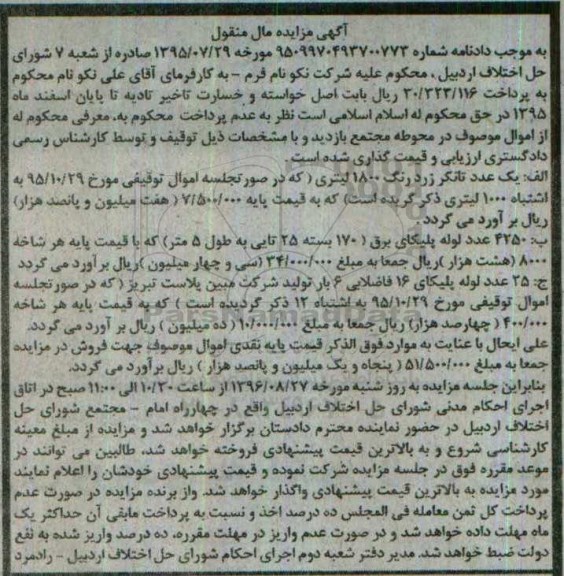 آگهی مزایده مال منقول
به موجب دادنامه شماره ۹۵۰۹۹۷۰۴۹۳۷۰۰۷۷۳ مورخه ۱۳۹۵/۰۷/۲۹ صادره از شعبه ۷ شورای
حل اختلاف اردبیل ، محکوم علیه شرکت نکو نام فرم - به کارفرمای آقای علی نکو نام محکوم
به پرداخت ۲۰/۳۲۳/۱۱۶ ریال بابت اصل خواسته و خسارت تاخیر تادیه تا پایان اسفند ماه
۱۳۹۵ در حق محکوم له اسلام اسلامی است نظر به عدم پرداخت محکوم به، معرفی محکوم له
از اموال موصوف در محوطه مجتمع بازدید و با مشخصات ذیل توقیف و توسط کارشناس رسمی
دادگستری ارزیابی و قیمت گذاری شده است.
الف: یک عدد تانکر زرد رنگ ۱۸۰۰ لیتری ( که در صورتجلسه اموال توقیفی مورخ ۹۵/۱۰/۲۹ به
اشتباه ۱۰۰۰ لیتری ذکر گریده است) که به قیمت پایه ۷/۵۰۰/۰۰۰ ( هفت میلیون و پانصد هزار)
ریال بر آورد می گردد .
ب: ۴۲۵۰ عدد لوله پلیکای برق ( ۱۷۰ بسته ۲۵ تایی به طول ۵ متر) که با قیمت پایه هر شاخه
۸۰۰۰ (هشت هزار )ریال جمعا به مبلغ ۳۴/۰۰۰/۰۰۰ (سی و چهار میلیون )ریال بر آورد می گردد
ج: ۲۵ عدد لوله پلیکای ۱۶ فاضلابی ۶ بار تولید شرکت مبین پلاست تبریز ( که در صورتجلسه
اموال توقیفی مورخ ۹۵/۱۰/۲۹ به اشتباه ۱۲ ذکر گردیده است ) که به قیمت پایه هر شاخه
۴۰۰/۰۰۰ ( چهارصد هزار) ریال جمعا به مبلغ ۱۰/۰۰۰/۰۰۰ ( ده میلیون ) ریال بر آورد می گردد.
علی ایحال با عنایت به موارد فوق الذکر قیمت پایه نقدی اموال موصوف جهت فروش در مزایده
جمعا به مبلغ ۵۱/۵۰۰/۰۰۰ ( پنجاه و یک میلیون و پانصد هزار ) ریال برآورد می گردد.
بنابراین جلسه مزایده به روز شنبه مورخه ۱۳۹۶/۰۸/۲۷ از ساعت ۱۰/۳۰ الی ۱۱:۰۰ صبح در اتاق
اجرای احکام مدنی شورای حل اختلاف اردبیل واقع در چهارراه امام - مجتمع شورای حل
اختلاف اردبیل در حضور نماینده محترم دادستان برگزار خواهد شد و مزایده از مبلغ معینه
کارشناسی شروع و به بالاترین قیمت پیشنهادی فروخته خواهد شد، طالبین می توانند در
موعد مقرره فوق در جلسه مزایده شرکت نموده و قیمت پیشنهادی خودشان را اعلام نمایند
مورد مزایده به بالاترین قیمت پیشنهادی واگذار خواهد شد. واز برنده مزایده در صورت عدم
پرداخت کل ثمن معامله فی المجلس ده درصد اخذ و نسبت به پرداخت مابقی آن حداکثر یک
ماه مهلت داده خواهد شد و در صورت عدم واریز در مهلت مقرره، ده درصد واریز شده به نفع
دولت ضبط خواهد شد. مدیر دفتر شعبه دوم اجرای احکام شورای حل اختلاف اردبیل - رادمرد
ParsNamadData